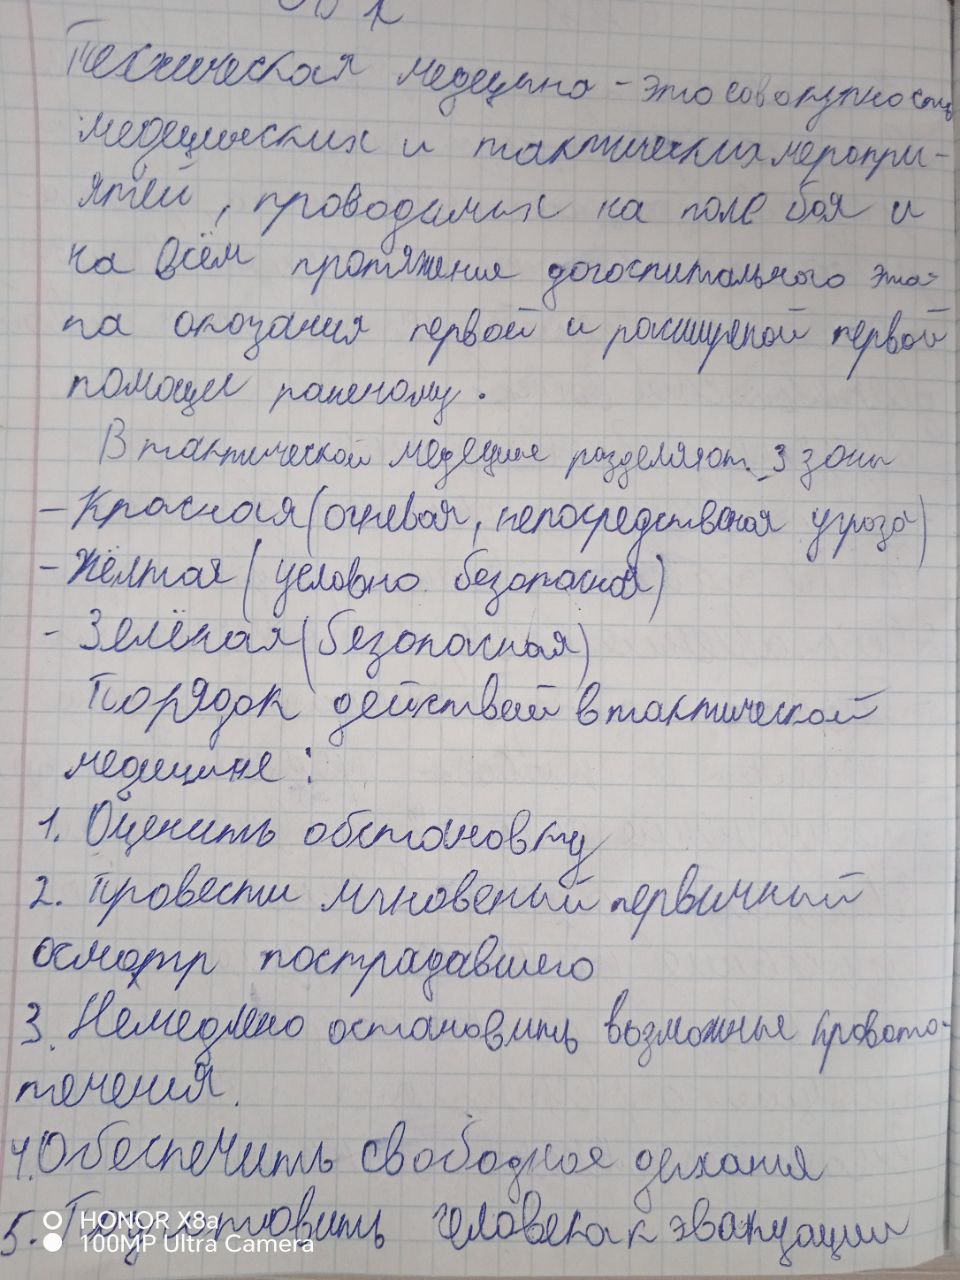 Техническая медецина - это совокупность
медецинских и тактических меропри-
ятей, проводимых на поле боя и
на всём протяжения догоспитального эта-
па оказания первой и расширеной первой
помощи раненому.
В тактической медецине разделяют 3 зоны
- Красная (огневая, непосредственая угроза)
- Жёлтая (условно безопасная)
- Зелёная (безопасная)
Порядок действий в тактической
медицине:
1. Оценить обстановку
2. Провести мгновеный первичный
осмотр пострадавшего
3. Немедлено остановить возможные кровото-
течения.
4. Обеспечить свободное дыхания
5. Подготовить человека к эвакуации
HONOR X8a
100MP Ultra Camera